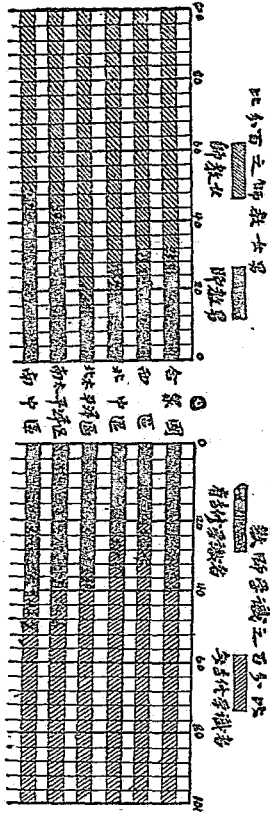 男女教師之百分比
女教師
男教師
100 80 60 40 20 0
合眾國
西區
北中區
北大西洋區
南大西洋區
南中區
教師學識之百分比
0 20 40 60 80 100